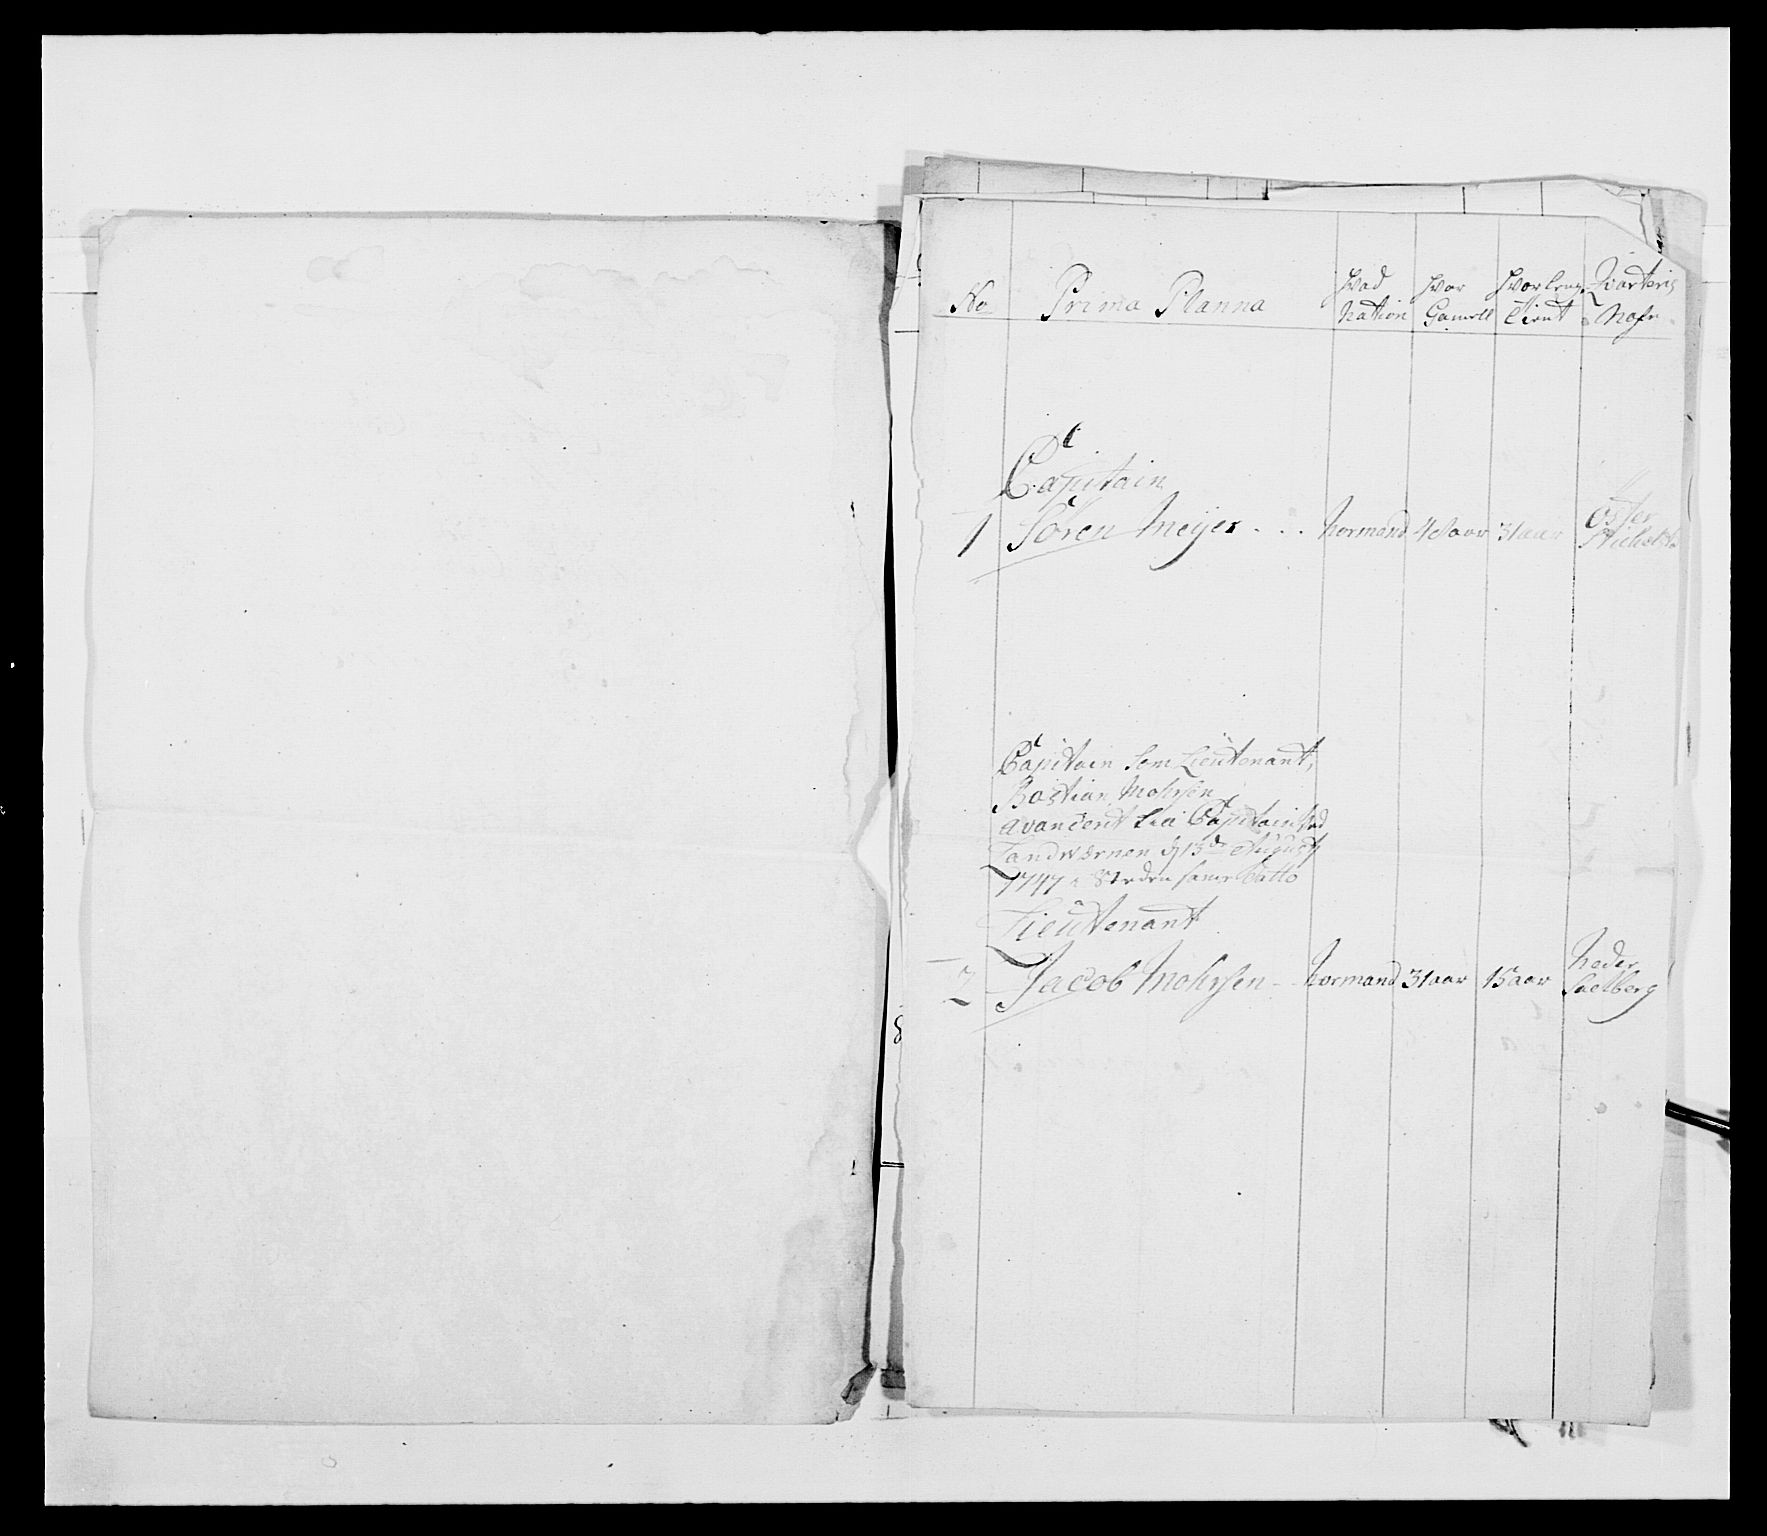 No
Prima Planna
Hvad Nation
Hvor Gamell
Hvor leng Tient
Qvarteris Nafn
Capitain
1 Sören Meijer . . . Normand 48 aar 31 aar Öster
Capitain Som Lieutenant,
Bastian Mohrsen
avancerit til Capitain ved
Landværnen d 13de August
1747 Steden samme Datto
Lieutenant
2 Jacob Mohrsen - Normand 31 aar 15 aar Neder Saelberg
8